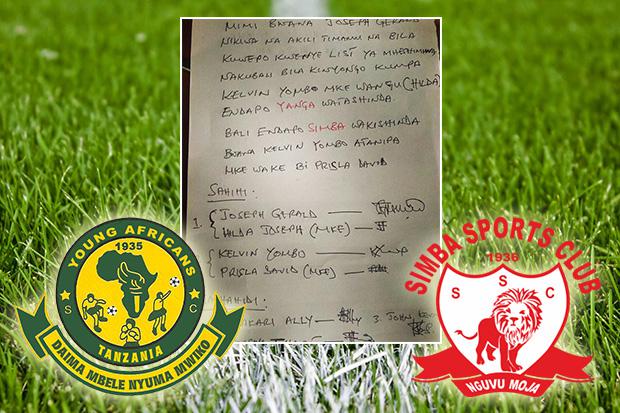 MIMI BWANA JOSEPH GERALD
NIKIWA NA AKILI TIMAMU NA BILA
KUWEPO KWENYE LIST YA
NAKUBALI BILA KINYONGO KUMPA
KELVIN YOMBO MKE WANGU (HILDA)
ENDAPO YANGA WATASHINDA.
BALI ENDAPO SIMBA WAKISHINDA
BWANA KELVIN YOMBO ATANIPA
MKE WAKE BI PRISLA DAVID
SAHIHI:
1. JOSEPH GERALD
HILDA JOSEPH (MKE)
KELVIN YOMBO
PRISLA DAVID (MKE)
ALLY 3. JOHN
YOUNG AFRICANS
1935
S C
TANZANIA
DAIMA MBELE NYUMA MWIKO
SIMBA SPORTS CLUB
1936
S S C
NGUVU MOJA